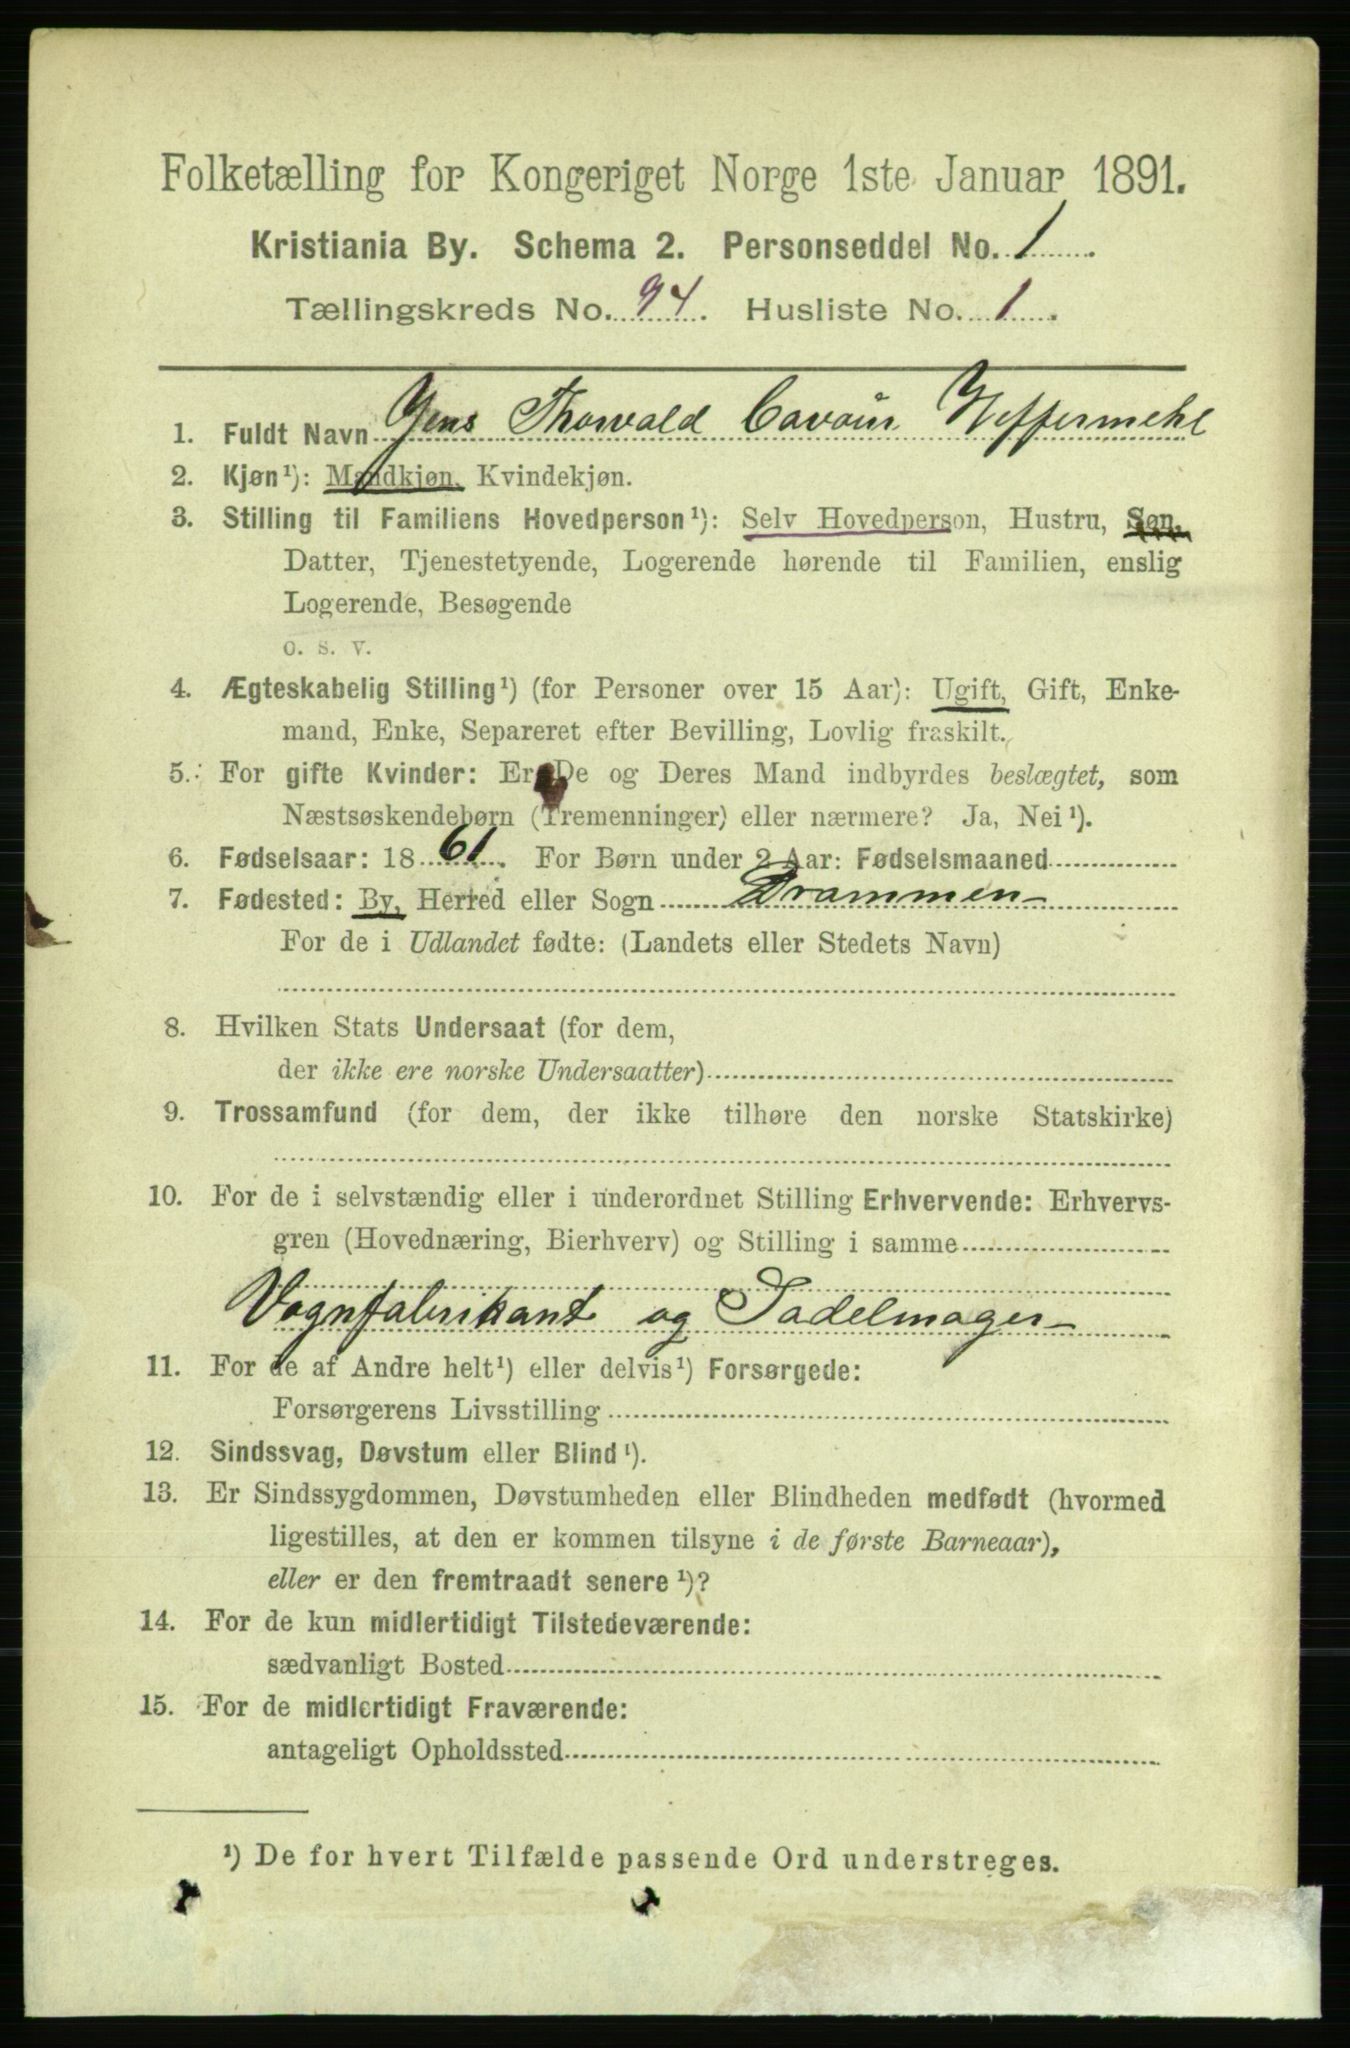 Folketælling for Kongeriget Norge 1ste Januar 1891.
Kristiania By. Schema 2. Personseddel No. 1
Tællingskreds No. 94. Husliste No. 1.
1. Fuldt Navn Jens Thorvald Cavour Heffermehl
2. Kjøn¹): Mandkjøn, Kvindekjøn.
3. Stilling til Familiens Hovedperson¹): Selv Hovedperson, Hustru, Søn,
Datter, Tjenestetyende, Logerende hørende til Familien, enslig
Logerende, Besøgende
o. s. v.
4. Ægteskabelig Stilling¹) (for Personer over 15 Aar): Ugift, Gift, Enke-
mand, Enke, Separeret efter Bevilling, Lovlig fraskilt.
5. For gifte Kvinder: Er De og Deres Mand indbyrdes beslægtet, som
Næstsøskendebørn (Tremenninger) eller nærmere? Ja, Nei¹).
6. Fødselsaar: 1861. For Børn under 2 Aar: Fødselsmaaned
7. Fødested: By, Herred eller Sogn Drammen
For de i Udlandet fødte: (Landets eller Stedets Navn)
8. Hvilken Stats Undersaat (for dem,
der ikke ere norske Undersaatter)
9. Trossamfund (for dem, der ikke tilhøre den norske Statskirke)
10. For de i selvstændig eller i underordnet Stilling Erhvervende: Erhvervs-
gren (Hovednæring, Bierhverv) og Stilling i samme
Vognfabrikant og Sadelmager
11. For de af Andre helt¹) eller delvis¹) Forsørgede:
Forsørgerens Livsstilling
12. Sindssvag, Døvstum eller Blind¹).
13. Er Sindssygdommen, Døvstumheden eller Blindheden medfødt (hvormed
ligestilles, at den er kommen tilsyne i de første Barneaar),
eller er den fremtraadt senere¹)?
14. For de kun midlertidigt Tilstedeværende:
sædvanligt Bosted
15. For de midlertidigt Fraværende:
antageligt Opholdssted
¹) De for hvert Tilfælde passende Ord understreges.